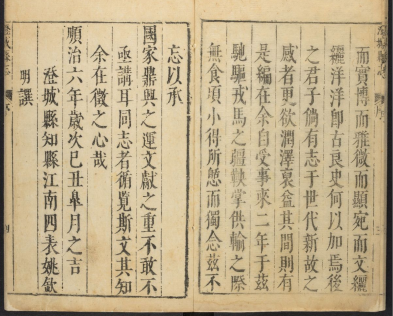 而實博而雅微而顯宛而文纚
纚洋洋卽古良史何以加焉後
之君子倘有志于世代新故之
感者更欲潤澤裒益其間則有
是編在余自受事來二年于茲
馳驅戎馬之疆鞅掌供輸之際
無食頃小得所憇而獨念茲不
忘以承
國家鼎興之運文獻之重不敢不
亟講耳同志者循覽斯文其知
余在徵之心哉
順治六年歲次己丑皐月之吉
澄城縣知縣江南四表姚欽
明譔